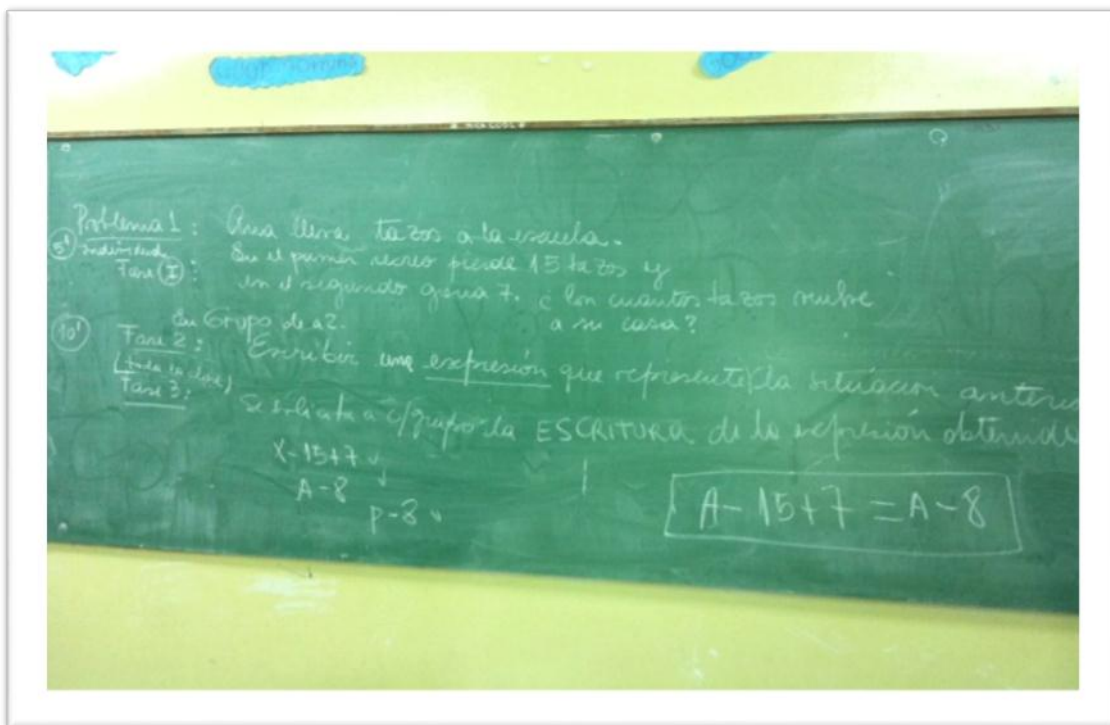 Problema 1: Ana lleva tazos a la escuela.
5' individual
Fase (I): En el primer recreo pierde 15 tazos y
en el segundo gana 7. ¿Con cuántos tazos vuelve
a su casa?
10' En Grupo de a 2.
Fase 2: Escribir una expresión que represente la situación anterior
(toda la clase)
Fase 3: Se solicita a c/grupo la ESCRITURA de la expresión obtenida
X-15+7
A-8
P-8
A-15+7=A-8